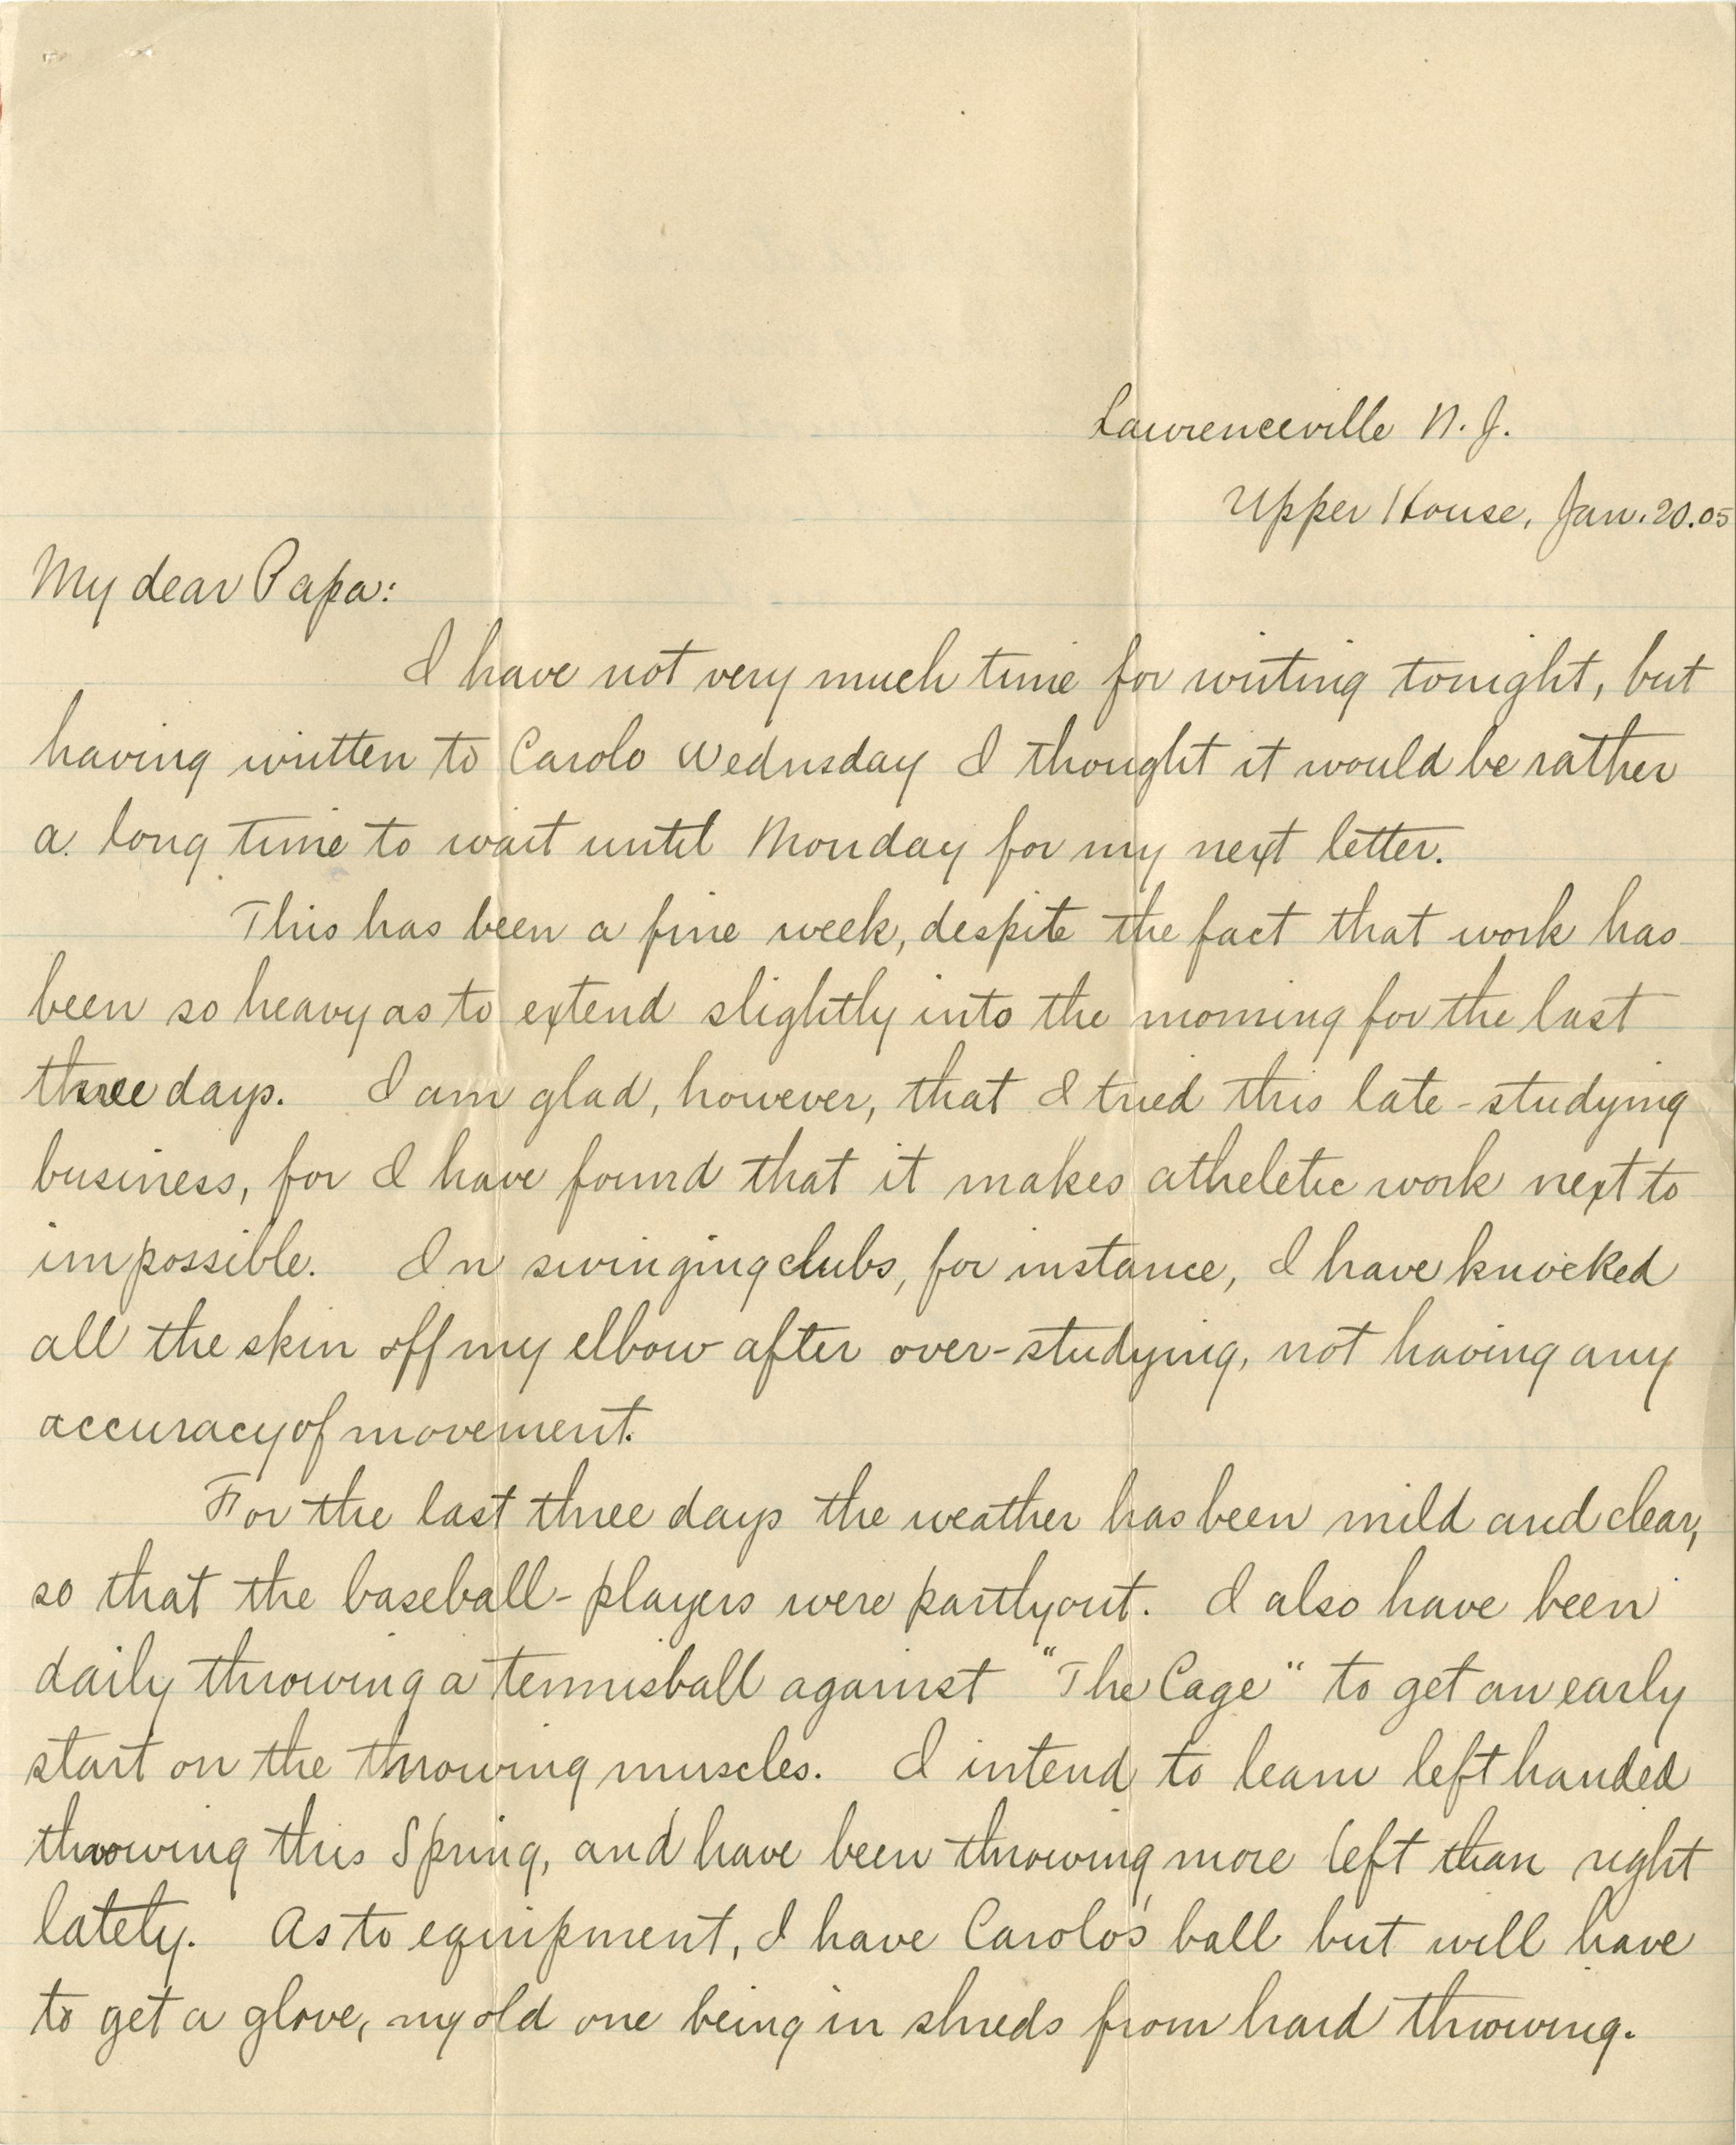 Lawrenceville N. J.
Upper House, Jan. 20. 05
My dear Papa:
I have not very much time for writing tonight, but
having written to Carolo Wednsday I thought it would be rather
a long time to wait until Monday for my next letter.
This has been a fine week, despite the fact that work has
been so heavy as to extend slightly into the morning for the last
three days. I am glad, however, that I tried this late-studying
business, for I have found that it makes atheletic work next to
impossible. In swinging clubs, for instance, I have knocked
all the skin off my elbow after over-studying, not having any
accuracy of movement.
For the last three days the weather has been mild and clear,
so that the baseball-players were partly out. I also have been
daily throwing a tennisball against "The Cage" to get an early
start on the throwing muscles. I intend to learn left handed
throwing this Spring, and have been throwing more left than right
lately. As to equipment, I have Carolo's ball but will have
to get a glove, my old one being in shreds from hard throwing.